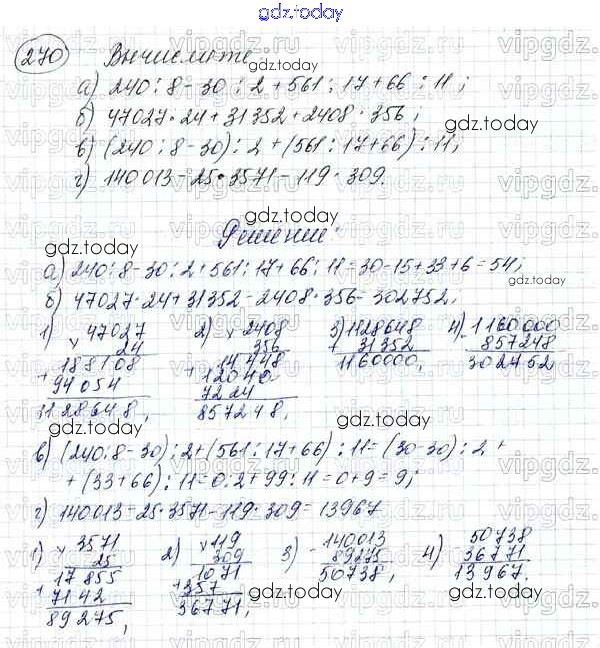 gdz.today
270 Вычислите
а) 240 : 8 - 30 : 2 + 561 : 17 + 66 : 11;
б) 47027 · 24 + 31352 - 2408 · 356;
в) (240 : 8 - 30) : 2 + (561 : 17 + 66) : 11;
г) 140013 - 25 · 3571 - 119 · 309.
Решение:
а) 240 : 8 - 30 : 2 + 561 : 17 + 66 : 11 = 30 - 15 + 33 + 6 = 54;
б) 47027 · 24 + 31352 - 2408 · 356 = 302752;
1) × 47027 2) × 2408 3) 1128648 4) 1160000
24 356 + 31352 - 857248
188108 14448 1160000, 302752
+ 94054 + 12040
1128648, 7224
857248,
в) (240 : 8 - 30) : 2 + (561 : 17 + 66) : 11 = (30 - 30) : 2 +
+ (33 + 66) : 11 = 0 : 2 + 99 : 11 = 0 + 9 = 9;
г) 140013 - 25 · 3571 - 119 · 309 = 13967
1) × 3571 2) × 119 3) - 140013 4) 50738
25 309 89275 36771
17855 1071 50738, 13967.
+ 7142 + 357
89275, 36771,
gdz.today